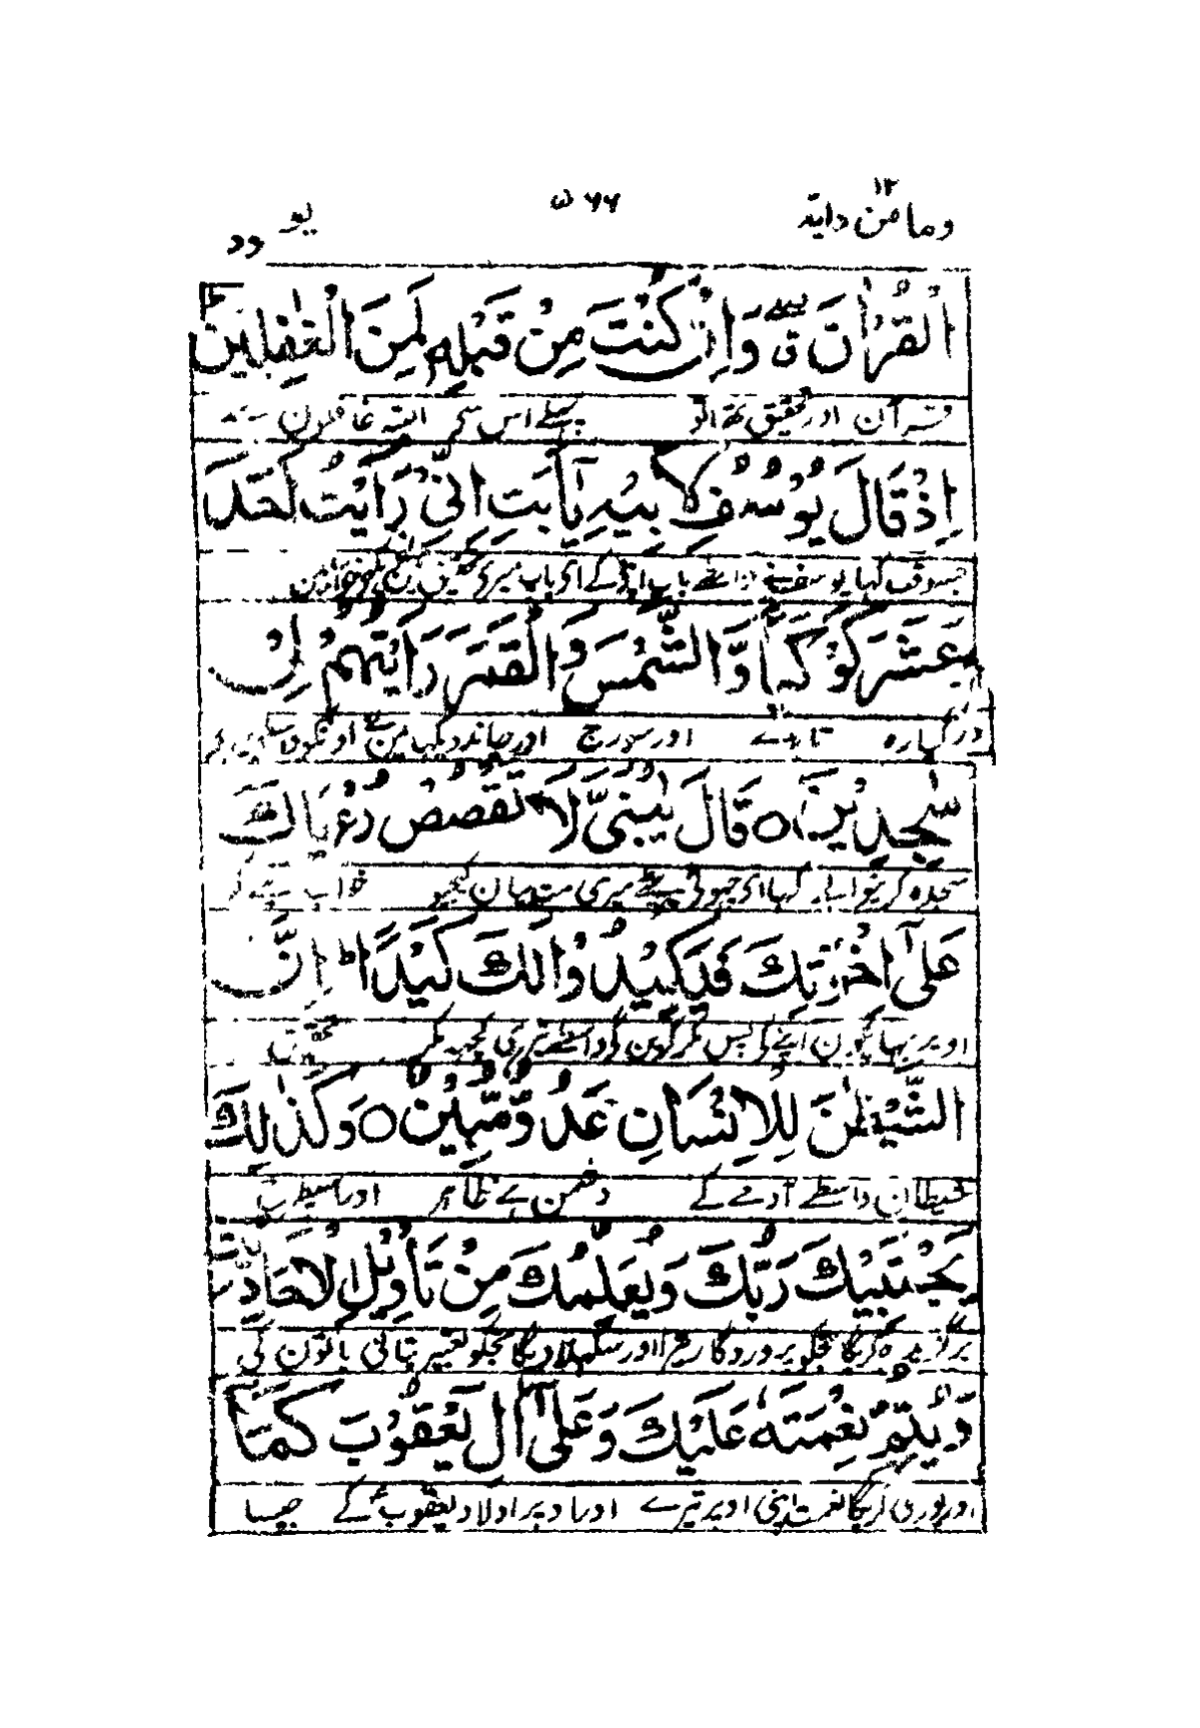 وما من دابة ١٢
٥٦٦
الْقُرْاٰنَ ۖ وَاِنْ كُنْتَ مِنْ قَبْلِهٖ لَمِنَ الْغٰفِلِيْنَ
قرآن اور تحقیق تھا تو پہلے اس سے البتہ غافلون سے
اِذْ قَالَ يُوْسُفُ لِاَبِيْهِ يٰٓاَبَتِ اِنِّيْ رَاَيْتُ اَحَدَ
جسوقت کہا یوسف نے واسطے باپ اپنے کے ای باپ میرے
عَشَرَ كَوْكَبًا وَّالشَّمْسَ وَالْقَمَرَ رَاَيْتُهُمْ لِيْ
گیارہ تارے اور سورج اور چاند دیکھا مین نے اونکو
سٰجِدِيْنَ ○ قَالَ يٰبُنَيَّ لَا تَقْصُصْ رُءْيَاكَ
سجدہ کرنیوالے کہا ای چھوٹے بیٹے میرے مت بیان کیجیو خواب
عَلٰٓى اِخْوَتِكَ فَيَكِيْدُوْا لَكَ كَيْدًا ؕ اِنَّ
اوپر بھائیون اپنے کے پس مکر کرینگے واسطے تیرے کچھ مکر تحقیق
الشَّيْطٰنَ لِلْاِنْسَانِ عَدُوٌّ مُّبِيْنٌ ○ وَكَذٰلِكَ
شیطان واسطے آدمے کے دشمن ہے ظاہر اور اسیطرح
يَجْتَبِيْكَ رَبُّكَ وَيُعَلِّمُكَ مِنْ تَاْوِيْلِ الْاَحَادِيْثِ
برگزیدہ کریگا تجکو پروردگار تیرا اور سکھلاویگا تجکو تعبیر بتانی باتون کی
وَيُتِمُّ نِعْمَتَهٗ عَلَيْكَ وَعَلٰٓى اٰلِ يَعْقُوْبَ كَمَآ
اور پوری کریگا نعمت اپنی اوپر تیرے اور اوپر اولاد یعقوب کے جیسا